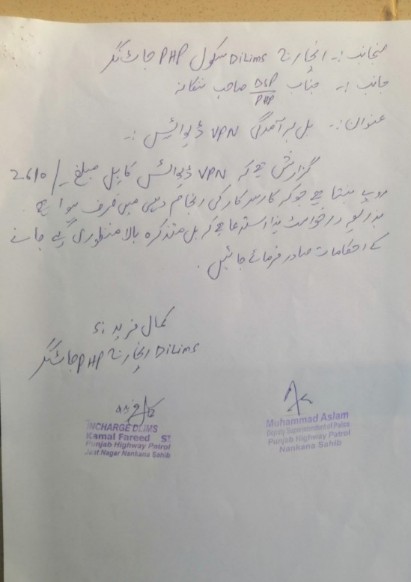 منجانب :۔ انچارج DLIMS سکول PHP جاٹ نگر
جانب :۔ جناب DSP/PHP صاحب ننکانہ
عنوان :۔ بل برآمدگی VPN ڈیوائیس :۔
گزارش ہے کہ VPN ڈیوائس کا بل مبلغ /2610
روپے بنتا ہے جو کہ کار سرکار کی انجام دہی میں صرف ہوا ہے
بذریعہ درخواست ہذا استدعا ہے کہ بل متذکرہ بالا منظوری کیے جانے
کے احکامات صادر فرمائے جائیں ۔
کمال فرید SI
انچارج DLIMS PHP جاٹ نگر
INCHARGE DLIMS
Kamal Fareed SI
Punjab Highway Patrol
Jatt Nagar Nankana Sahib
Muhammad Aslam
Deputy Superintendent of Police
Punjab Highway Patrol
Nankana Sahib